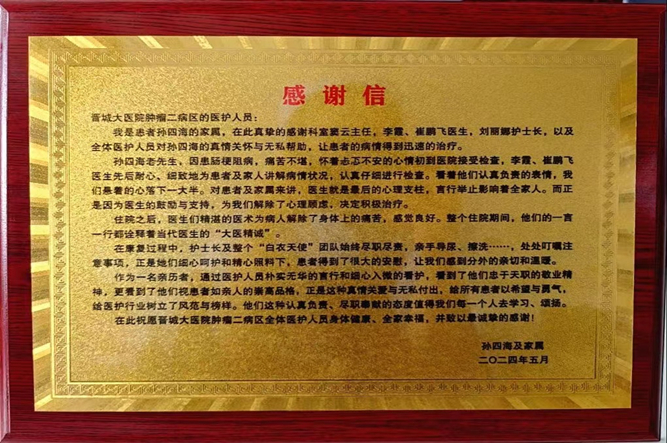 感谢信
晋城大医院肿瘤二病区的医护人员：
我是患者孙四海的家属，在此真挚的感谢科室窦云主任，李霞、崔鹏飞医生，刘丽娜护士长，以及
全体医护人员对孙四海的真情关怀与无私帮助，让患者的病情得到迅速的治疗。
孙四海老先生，因患肠梗阻病，痛苦不堪，怀着忐忑不安的心情初到医院接受检查，李霞、崔鹏飞
医生先后耐心、细致地为患者及家人讲解病情状况，认真仔细进行检查。看着他们认真负责的表情，我
们悬着的心落下一大半。对患者及家属来讲，医生就是最后的心理支柱，言行举止影响着全家人。而正
是因为医生的鼓励与支持，为我们解除了心理顾虑，决定积极治疗。
住院之后，医生们精湛的医术为病人解除了身体上的痛苦，感觉良好。整个住院期间，他们的一言
一行都诠释着当代医生的“大医精诚”。
在康复过程中，护士长及整个“白衣天使”团队始终尽职尽责，亲手导尿、擦洗……，处处叮嘱注
意事项，正是她们细心呵护和精心照料下，患者得到了很大的安慰，让我们感到分外的亲切和温暖。
作为一名亲历者，通过医护人员朴实无华的言行和细心入微的看护，看到了他们忠于天职的敬业精
神，更看到了他们视患者如亲人的崇高品格，正是这种真情关爱与无私付出，给所有患者以希望与勇气，
给医护行业树立了风范与榜样。他们这种认真负责、尽职奉献的态度值得我们每一个人去学习、颂扬。
在此祝愿晋城大医院肿瘤二病区全体医护人员身体健康、全家幸福，并致以最诚挚的感谢！
孙四海及家属
二〇二四年五月